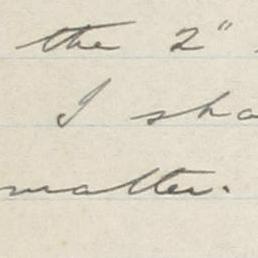 the 2"
I sha
matter.